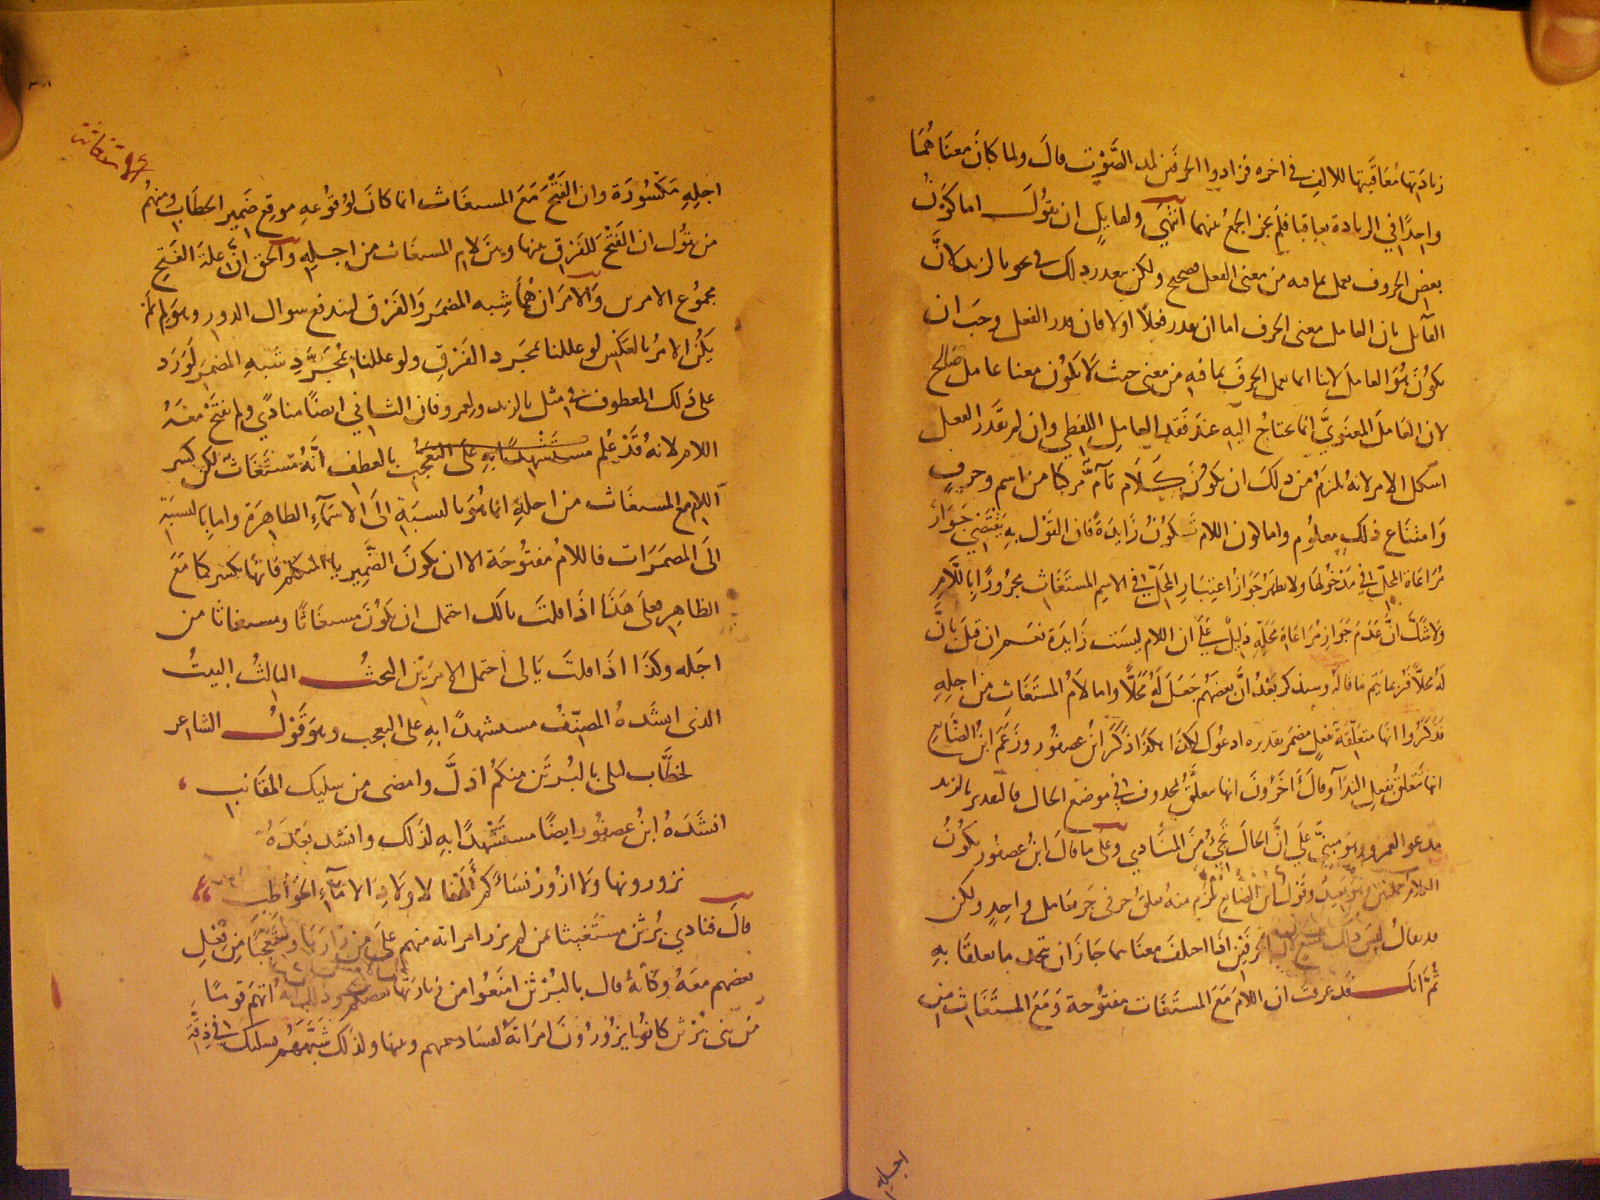 زيادتها معاقبتها للالف في اخره فزادوا الحرفين لمد الصوت قال ولما كان معناهما
واحدا في الزيادة تعاقبا فلم يجز الجمع بينهما انتهى ولقايل ان يقول اما كون
بعض الحروف تعمل بما فيه من معنى الفعل فصحيح ولكن تعذر ذلك في نحو يا لزيد لان
القايل بان العامل معنى الحرف اما ان يقدر فعلا اولا فان قدر الفعل وجب ان
يكون هو العامل لاننا انما نعمل الحرف بما فيه من معنى حيث لا يكون معنا عامل صالح
لان العامل المعنوي انما يحتاج اليه عند فقد العامل اللفظي وان لم يقدر الفعل
اشكل الامر لانه يلزم من ذلك ان يكون كلام تام مركبا من اسم وحرف
وامتناع ذلك معلوم واما كون اللام تكون زايدة فان القول به يقتضي جواز
مراعاة المحل في مدخولها ولا يظهر جواز اعتبار المحل في الاسم المستغاث مجرورا باللام
ولا شك ان عدم جواز مراعاة محله دليل على ان اللام ليست زايدة نعم ان قيل بان
له محلا فربما يتم ما قاله وسيذكر بعد ان بعضهم جعل له محلا واما لام المستغاث من اجله
فذكروا انها متعلقة بفعل مضمر تقديره ادعوك لكذا هكذا ذكر ابن عصفور وزعم ابن الضايع
انها تتعلق بفعل الندآ وقال آخرون انها تتعلق بمحذوف في موضع الحال فالتقدير يا لزيد
مدعوا لعمرو وهو مبني على ان الحال تجيء من المنادى وعلى ما قال ابن عصفور يكون
الكلام جملتين وهو بعيد وقول ابن الضايع يلزم منه تعلق حرفي جر بعامل واحد ولكن
قد يقال ليس ذلك الحرفين اذا اختلف معناهما جاز ان يتحد ما تعلقا به
ثم انك قد عرفت ان اللام مع المستغاث مفتوحة ومع المستغاث من
اجله
اجله مكسورة وان الفتح مع المستغاث انما كان لوقوعه موقع ضمير الخطاب ومنهم
من يقول ان الفتح للفرق بينها وبين لام المستغاث من اجله والحق ان علة الفتح
مجموع الامرين والامران هما شبه المضمر والفرق ليندفع سوال الدور وهو لم لم
يكن الامر بالعكس لو عللنا بمجرد الفرق ولو عللنا بمجرد شبه المضمر لورد
على ذلك المعطوف في مثل يا لزيد ولعمرو فان الثاني ايضا منادى ولم تفتح معه
اللام لانه قد علم مستشهدا به على التعجب بالعطف انه مستغاث ثم لكن كسر
اللام مع المستغاث من اجله انما هو بالنسبة الى الاسمآء الظاهرة واما بالنسبة
الى المضمرات فاللام مفتوحة الا ان يكون الضمير يا المتكلم فانها تكسر كما مع
الظاهر فعلى هذا اذا قلت يا لك احتمل ان يكون مستغاثا ومستغاثا من
اجله وكذا اذا قلت يا لي احتمل الامرين البحث الثالث البيت
الذي انشده المصنف مستشهدا به على التعجب وهو قول الشاعر
لخطاب ليلى يا لبرثن منكم ادل وامضى من سليك المقانب
انشده ابن عصفور ايضا مستشهدا به لذلك وانشد بعده
تزورونها ولا ازور نسآءكم ألهفا لاولاد الامآء الحواطب
قال فنادى برثن مستغيثا بمن لم يزر امراته منهم على من زارها وتعجبا من فعل
بعضهم معه وكانه قال يا لبرثن امنعوا من زيارتها بعضكم انهم قوما
من بني برثن كانوا يزورون امراته لفساد بينهم وبينها ولذلك شبههم بسليك في دقة